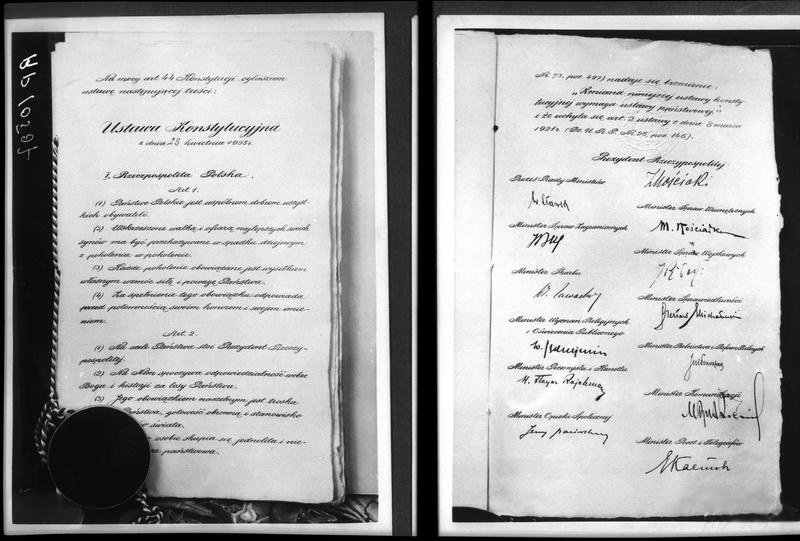 Na mocy art. 44 Konstytucji ogłaszam
ustawę następującej treści:
Ustawa Konstytucyjna
z dnia 23 kwietnia 1935 r.
I. Rzeczpospolita Polska.
Art. 1.
(1) Państwo Polskie jest wspólnem dobrem wszyst-
kich obywateli.
(2) Wskrzeszone walką i ofiarą najlepszych swoich
synów ma być przekazywane w spadku dziejowym
z pokolenia w pokolenie.
(3) Każde pokolenie obowiązane jest wysiłkiem
własnym wzmóc siłę i powagę Państwa.
(4) Za spełnienie tego obowiązku odpowiada
przed potomnością swoim honorem i swojem imie-
niem.
Art. 2.
(1) Na czele Państwa stoi Prezydent Rzeczy-
pospolitej.
(2) Na Nim spoczywa odpowiedzialność wobec
Boga i historji za losy Państwa.
(3) Jego obowiązkiem naczelnym jest troska
Państwa, gotowość obronną i stanowisko
świata.
osobie skupia się jednolita i nie-
państwowa.
Nr. 73, poz. 497) nadaje się brzmienie:
"Zmiana niniejszej ustawy konsty-
tucyjnej wymaga ustawy państwowej."
i że uchyla się art. 2 ustawy z dnia 8 marca
1921 r. (Dz. U. R. P. Nr. 25, poz. 146).
Prezydent Rzeczypospolitej
I Mościcki
Prezes Rady Ministrów
Minister Spraw Wewnętrznych
Minister Spraw Zagranicznych
Minister Spraw Wojskowych
Minister Skarbu
Minister Sprawiedliwości
Minister Wyznań Religijnych
i Oświecenia Publicznego
Minister Rolnictwa i Reform Rolnych
Minister Przemysłu i Handlu
Minister Komunikacji
Minister Opieki Społecznej
Minister Poczt i Telegrafów